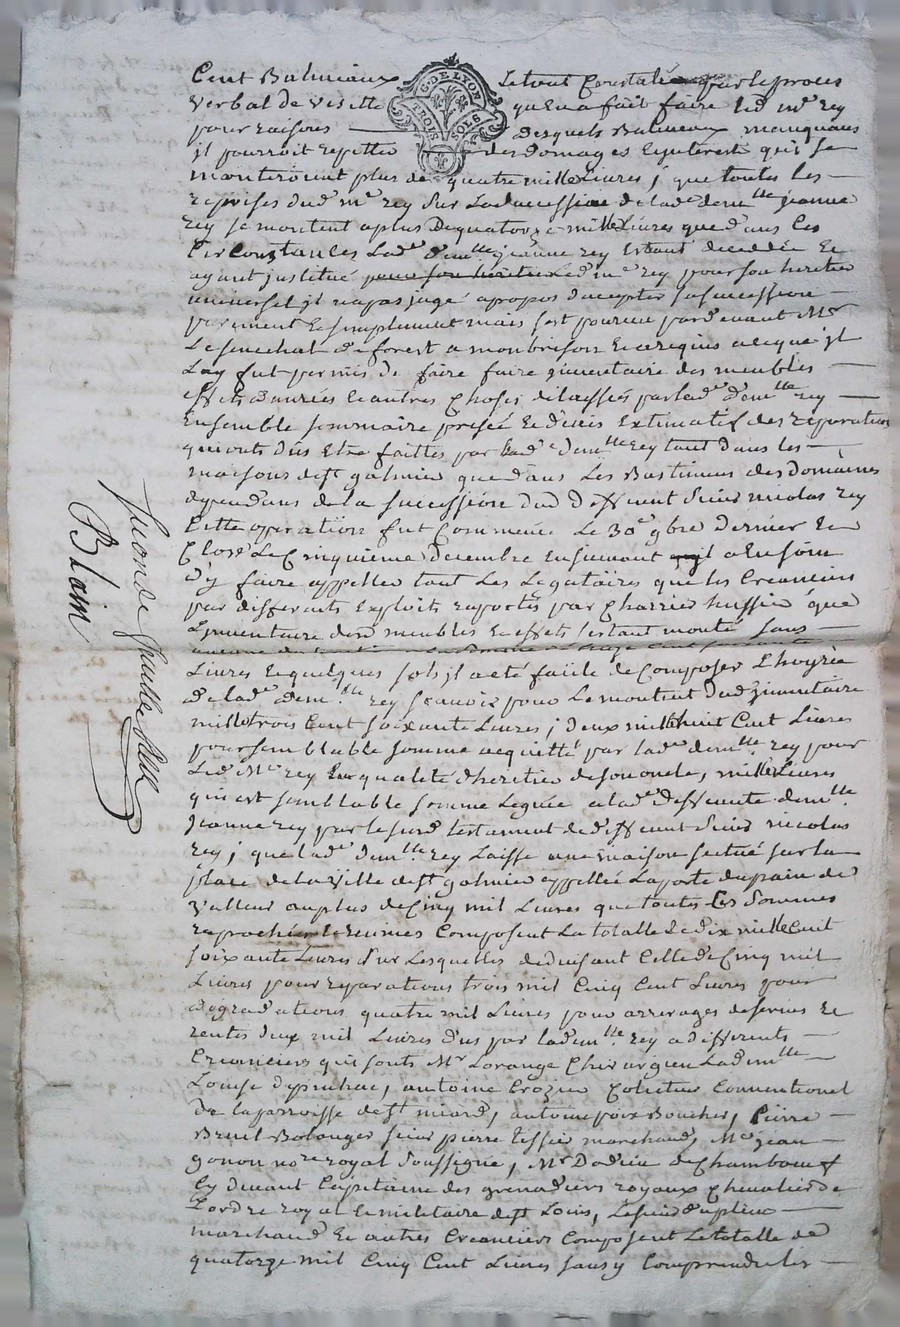 Cent Baliveaux Le tout Constaté par le proces
G. DE LYON
TROIS SOLS
verbal de visitte qu'en a fait faire led. mr. rey
pour raisons desquels Baliveaux manquans
il pourroit repetter des domages Et interest qui se
monteroient plus de quatre mille Livres ; que toutes les
reprises dud. mr. rey sur La succession de lad. demlle jeanne
rey se montent a plus De quatorze mille Livres que dans Ces
Circonstances Lad. demlle jeanne rey Estant decedée Et
ayant justitué pour son heritier Led. mr. rey pour son heritier
universel il n'a pas jugé a propos d'accepter sa succession
purement Et simplement mais s'est pourvu par devant Mr
Le senechal de forest a montbrison Et acquis ce que il
Luy fut permis de faire faire jnventaire des meubles
effets danrées Et autres choses delaissés par lad. demlle rey
Ensemble sommaire prisée Et devis Extimatif des reparations
qui ont dûs Etre faittes par Lade demlle rey tant dans les
maisons de st galmier que dans Les Bastimens des Domaines
dependans de la succession dud. deffunt sieur nicolas rey
Cette operation fut Commencée Le 30e 9bre dernier Et
Close Le Cinquieme decembre Ensuivant il a En soin
d'y faire appeller tant Les Legataires que les Creanciers
par differents Exploits raportés par Charrier huissier que
L'jnventaire des meubles Et effets s'estant monté sans
Livres Et quelques sols il a été facile de Composer L'hoyrie
de lad. demlle rey scavoir pour Le montant dud. jnventaire
mille trois Cent soixante Livres ; deux mille huit Cent Livres
pour semblable somme acquitté par lad. demlle rey pour
Led. Mr rey En qualité d'heritier de son oncle, mille Livres
qui est semblable somme Leguée a lade deffunte demlle
Jeanne rey par le susd. testament de deffunt sieur nicolas
rey ; que lade demlle rey Laisse une maison situé sur la
place de la ville de st galmier appellée La porte
valleur au plus de Cinq mil Livres que toutes Les sommes
raprochées Et reunies Composent La totalle de dix mille Cent
soixante Livres sur Lesquelles deduisant Celle de Cinq mil
Livres pour reparations trois mil Cinq Cent Livres pour
degradations quatre mil Livres pour arrerages de servis Et
rentes deux mil Livres dus par lad. demlle rey a differents
Creanciers qui sont Mr Lorange Chirurgien La demlle
Louise antoine Crozier Collecteur Conventionel
de la parroisse de st miard, antoine Boucher, Pierre
Breuil Bolonger sieur pierre tissier marchand, Me jean
gonon nore royal soussigné, Mr Dodieu de Chamboeuf
Cy devant Capitaine des grenadiers royaux Chevalier de
Lordre royal Et militaire de st Louis, Le sieur
marchand Et autres Creanciers Composent Le totalle de
quatorze mil Cinq Cent Livres sans y Comprendre les
Seconde feuille
Blain